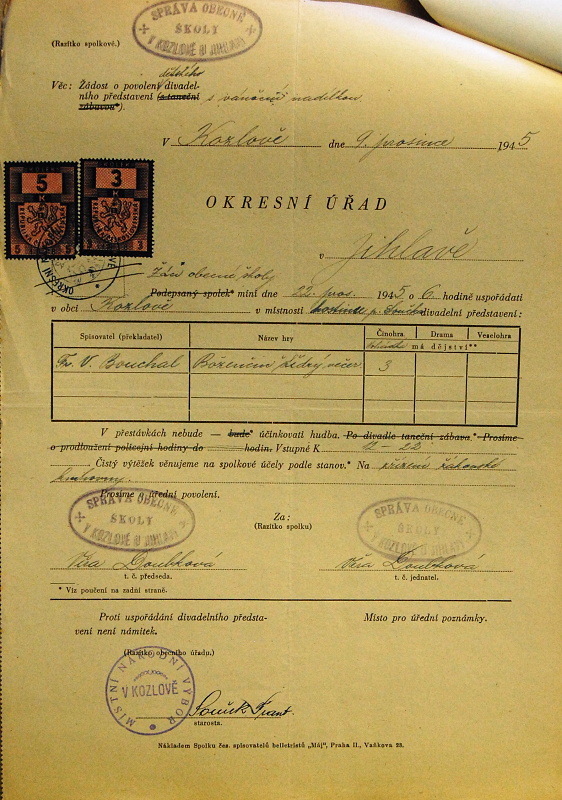 SPRÁVA OBECNÉ
ŠKOLY
V KOZLOVĚ U JIHLAVY
(Razítko spolkové.)
dětského
Věc: Žádost o povolení divadel-
ního představení (s taneční s vánoční nadílkou
zábavou*).
V Kozlově dne 9. prosince 1945
5 K 5 5
3 K 3 3
OKRESNÍ
OKRESNÍ ÚŘAD
v Jihlavě
obecné školy
Podepsaný spolek* míní dne 22. pros. 1945 o 6. hodině uspořádati
v obci Kozlově v místnosti hostince p. divadelní představení:
Spisovatel (překladatel) Název hry Činohra Drama Veselohra
má dějství**
Fr. V. Bouchal Boženčin štědrý večer 3
V přestávkách nebude — bude* účinkovati hudba. Po divadle taneční zábava.* Prosíme
o prodloužení policejní hodiny do hodin. Vstupné K
Čistý výtěžek věnujeme na spolkové účely podle stanov.* Na zřízení žákovské
knihovny.
Prosíme o úřední povolení.
SPRÁVA OBECNÉ
ŠKOLY
V KOZLOVĚ U JIHLAVY
Za:
(Razítko spolku)
SPRÁVA OBECNÉ
ŠKOLY
V KOZLOVĚ U JIHLAVY
Věra Doubková Věra Doubková
t. č. předseda. t. č. jednatel.
* Viz poučení na zadní straně.
Proti uspořádání divadelního předsta-
vení není námitek.
Místo pro úřední poznámky.
(Razítko obecního úřadu.)
MÍSTNÍ NÁRODNÍ VÝBOR
V KOZLOVĚ
Součk Frant
starosta.
Nákladem Spolku čes. spisovatelů belletristů „Máj", Praha II., Vaňkova 28.